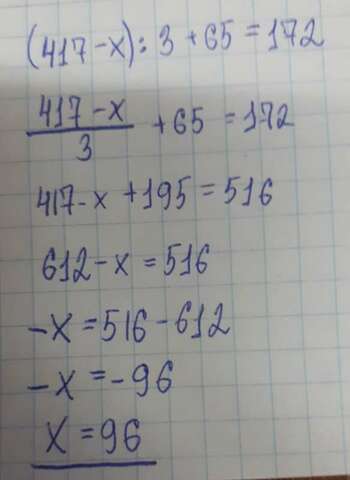 (417-x):3+65=172
417-x
3
+65=172
417-x+195=516
612-x=516
-x=516-612
-x=-96
x=96